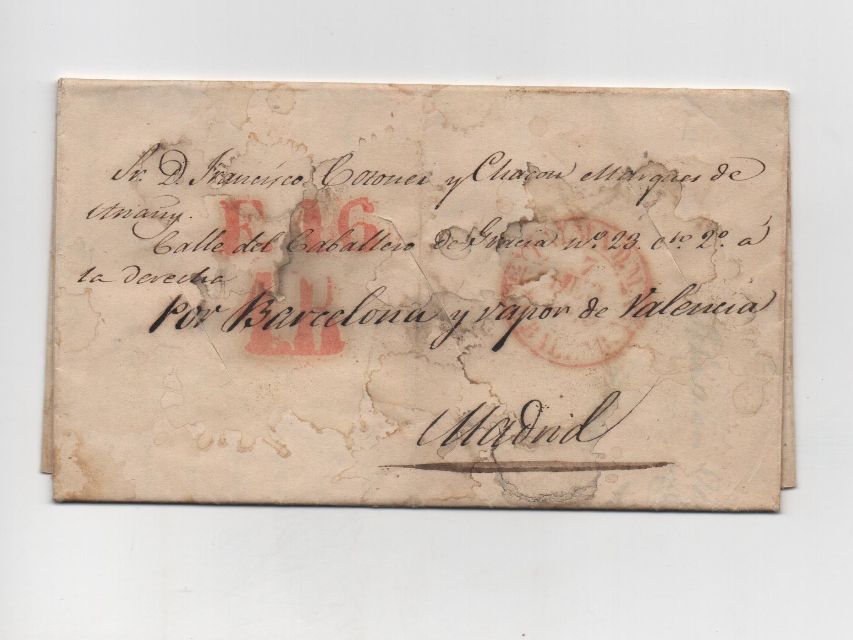 Sr. D. Francisco Cotoner y Chacon Marques de
Anany.
F.16
Calle del Caballero de Gracia nº 23 cto 2º á
la derecha
Por Barcelona y vapor de Valencia
Madrid